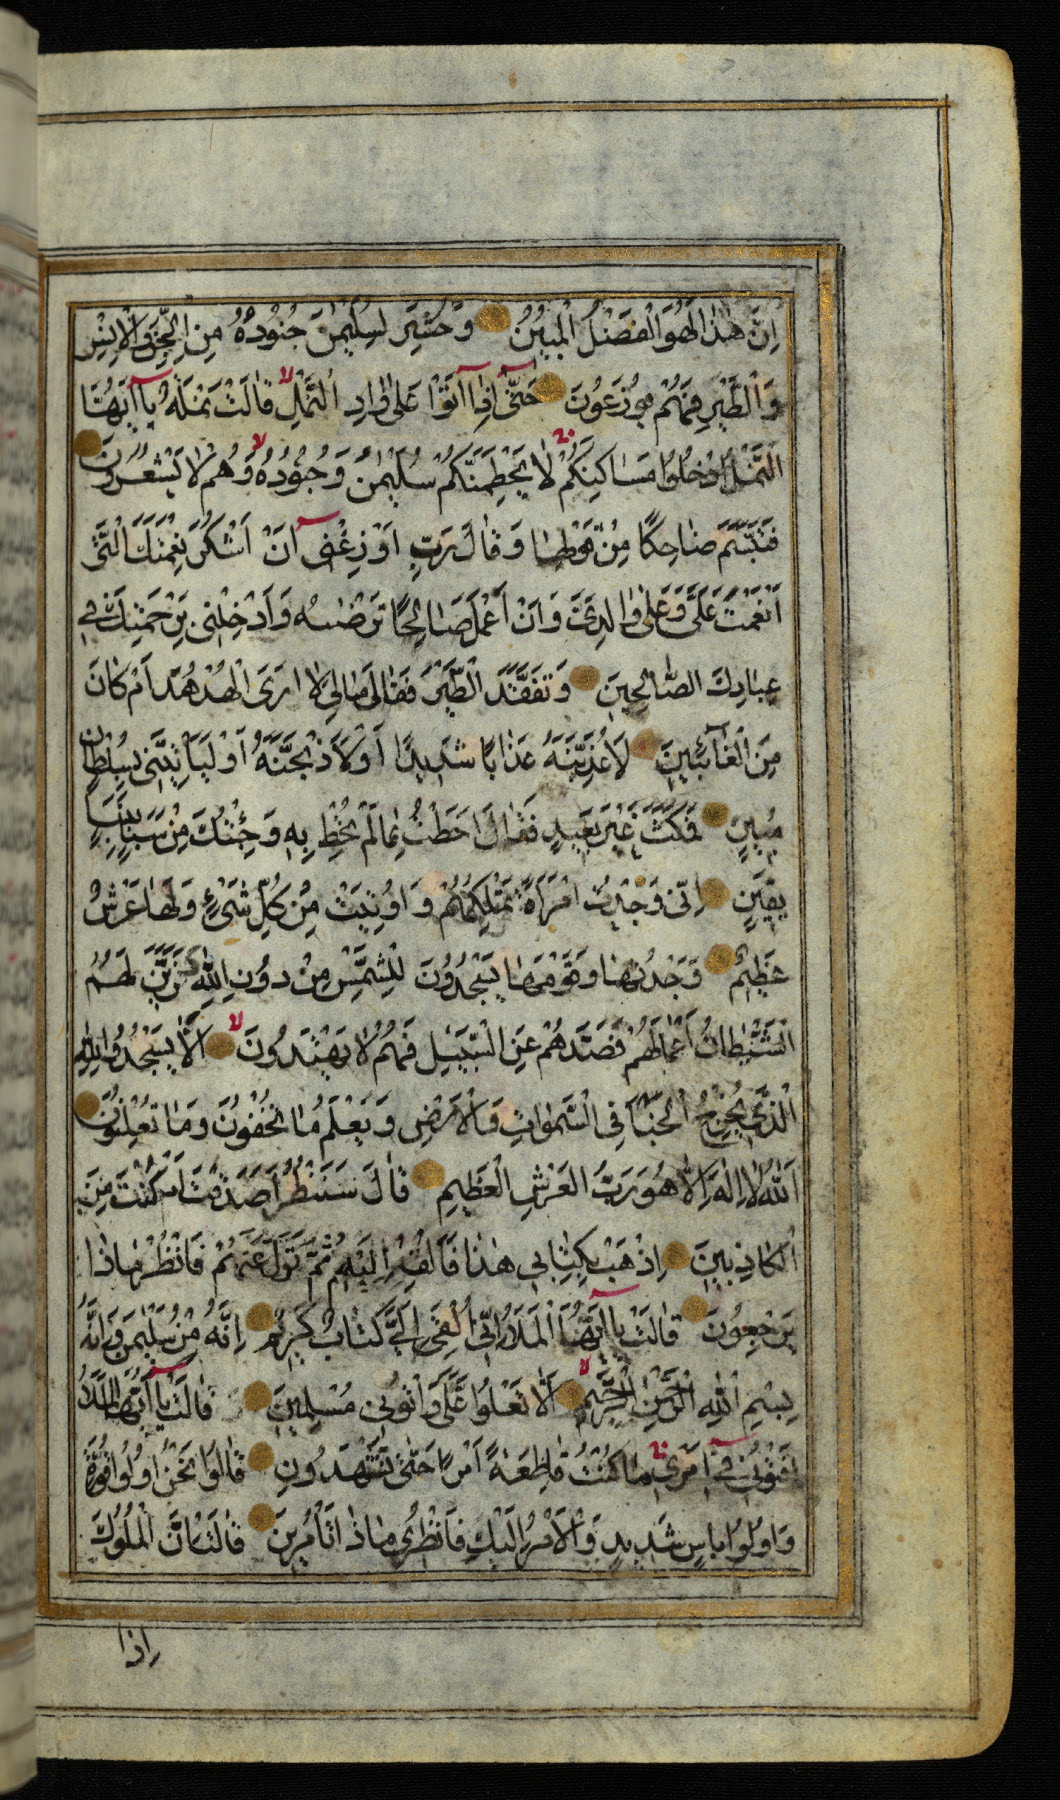 اِنَّ هٰذَا لَهُوَ الْفَضْلُ الْمُبِينُ وَحُشِرَ لِسُلَيْمٰنَ جُنُودُهُ مِنَ الْجِنِّ وَالْاِنْسِ
وَالطَّيْرِ فَهُمْ يُوزَعُونَ حَتّٰى اِذَا اَتَوْا عَلٰى وَادِ النَّمْلِ قَالَتْ نَمْلَةٌ يَا اَيُّهَا
النَّمْلُ ادْخُلُوا مَسَاكِنَكُمْ لَا يَحْطِمَنَّكُمْ سُلَيْمٰنُ وَجُنُودُهُ وَهُمْ لَا يَشْعُرُونَ
فَتَبَسَّمَ ضَاحِكًا مِنْ قَوْلِهَا وَقَالَ رَبِّ اَوْزِعْنِى اَنْ اَشْكُرَ نِعْمَتَكَ الَّتِى
اَنْعَمْتَ عَلَىَّ وَعَلٰى وَالِدَىَّ وَاَنْ اَعْمَلَ صَالِحًا تَرْضٰيهُ وَاَدْخِلْنِى بِرَحْمَتِكَ فِى
عِبَادِكَ الصَّالِحِينَ وَتَفَقَّدَ الطَّيْرَ فَقَالَ مَالِىَ لَا اَرَى الْهُدْهُدَ اَمْ كَانَ
مِنَ الْغَآئِبِينَ لَاُعَذِّبَنَّهُ عَذَابًا شَدِيدًا اَوْ لَاَذْبَحَنَّهُ اَوْ لَيَاْتِيَنِّى بِسُلْطَانٍ
مُبِينٍ فَمَكَثَ غَيْرَ بَعِيدٍ فَقَالَ اَحَطْتُ بِمَا لَمْ تُحِطْ بِهِ وَجِئْتُكَ مِنْ سَبَاٍ بِنَبَاٍ
يَقِينٍ اِنِّى وَجَدْتُ امْرَاَةً تَمْلِكُهُمْ وَاُوتِيَتْ مِنْ كُلِّ شَىْءٍ وَلَهَا عَرْشٌ
عَظِيمٌ وَجَدْتُهَا وَقَوْمَهَا يَسْجُدُونَ لِلشَّمْسِ مِنْ دُونِ اللّٰهِ وَزَيَّنَ لَهُمُ
الشَّيْطَانُ اَعْمَالَهُمْ فَصَدَّهُمْ عَنِ السَّبِيلِ فَهُمْ لَا يَهْتَدُونَ اَلَّا يَسْجُدُوا لِلّٰهِ
الَّذِى يُخْرِجُ الْخَبْاَ فِى السَّمٰوَاتِ وَالْاَرْضِ وَيَعْلَمُ مَا تُخْفُونَ وَمَا تُعْلِنُونَ
اَللّٰهُ لَا اِلٰهَ اِلَّا هُوَ رَبُّ الْعَرْشِ الْعَظِيمِ قَالَ سَنَنْظُرُ اَصَدَقْتَ اَمْ كُنْتَ مِنَ
الْكَاذِبِينَ اِذْهَبْ بِكِتَابِى هٰذَا فَاَلْقِهْ اِلَيْهِمْ ثُمَّ تَوَلَّ عَنْهُمْ فَانْظُرْ مَاذَا
يَرْجِعُونَ قَالَتْ يَا اَيُّهَا الْمَلَؤُا اِنِّى اُلْقِىَ اِلَىَّ كِتَابٌ كَرِيمٌ اِنَّهُ مِنْ سُلَيْمٰنَ وَاِنَّهُ
بِسْمِ اللّٰهِ الرَّحْمٰنِ الرَّحِيمِ اَلَّا تَعْلُوا عَلَىَّ وَاْتُونِى مُسْلِمِينَ قَالَتْ يَا اَيُّهَا الْمَلَؤُ
اَفْتُونِى فِى اَمْرِى مَا كُنْتُ قَاطِعَةً اَمْرًا حَتّٰى تَشْهَدُونِ قَالُوا نَحْنُ اُولُوا قُوَّةٍ
وَاُولُوا بَاْسٍ شَدِيدٍ وَالْاَمْرُ اِلَيْكِ فَانْظُرِى مَاذَا تَاْمُرِينَ قَالَتْ اِنَّ الْمُلُوكَ
اِذَا